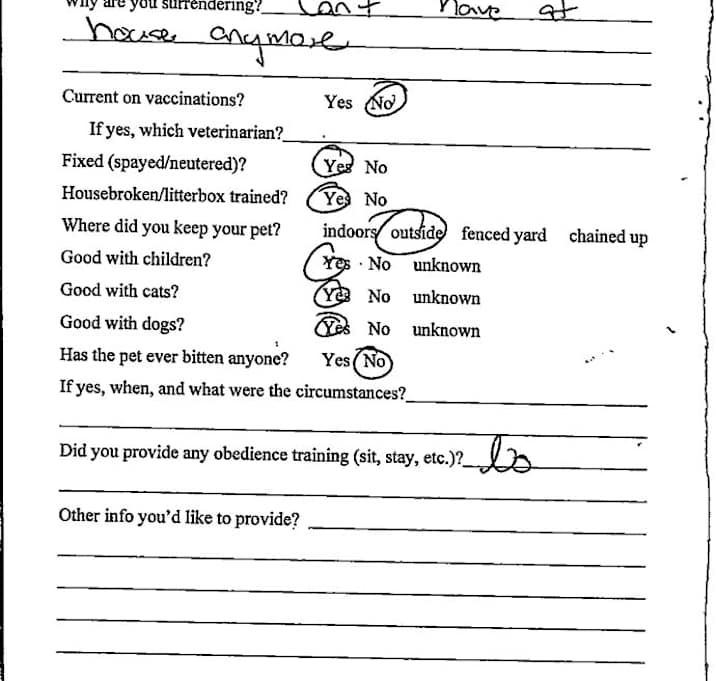 Why are you surrendering? Can't have at
house anymore
Current on vaccinations? Yes No
If yes, which veterinarian?
Fixed (spayed/neutered)? Yes No
Housebroken/litterbox trained? Yes No
Where did you keep your pet? indoors outside fenced yard chained up
Good with children? Yes No unknown
Good with cats? Yes No unknown
Good with dogs? Yes No unknown
Has the pet ever bitten anyone? Yes No
If yes, when, and what were the circumstances?
Did you provide any obedience training (sit, stay, etc.)?
Other info you'd like to provide?